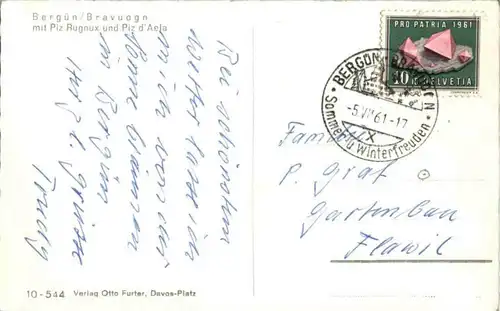 Bergün/Bravuogn
mit Piz Rugnux und Piz d'Aela
Bei schönstem
Wetter lasse ich
mich von der
Sonne bräunen
in Bergün
Herzl. Grüsse
Trudy
10-544 Verlag Otto Furter, Davos-Platz
PRO PATRIA 1961
10 HELVETIA
BERGÜN
-5.VII.61-17
Sommer- u Winterfreuden
Familie
P. Graf
Gartenbau
Flawil